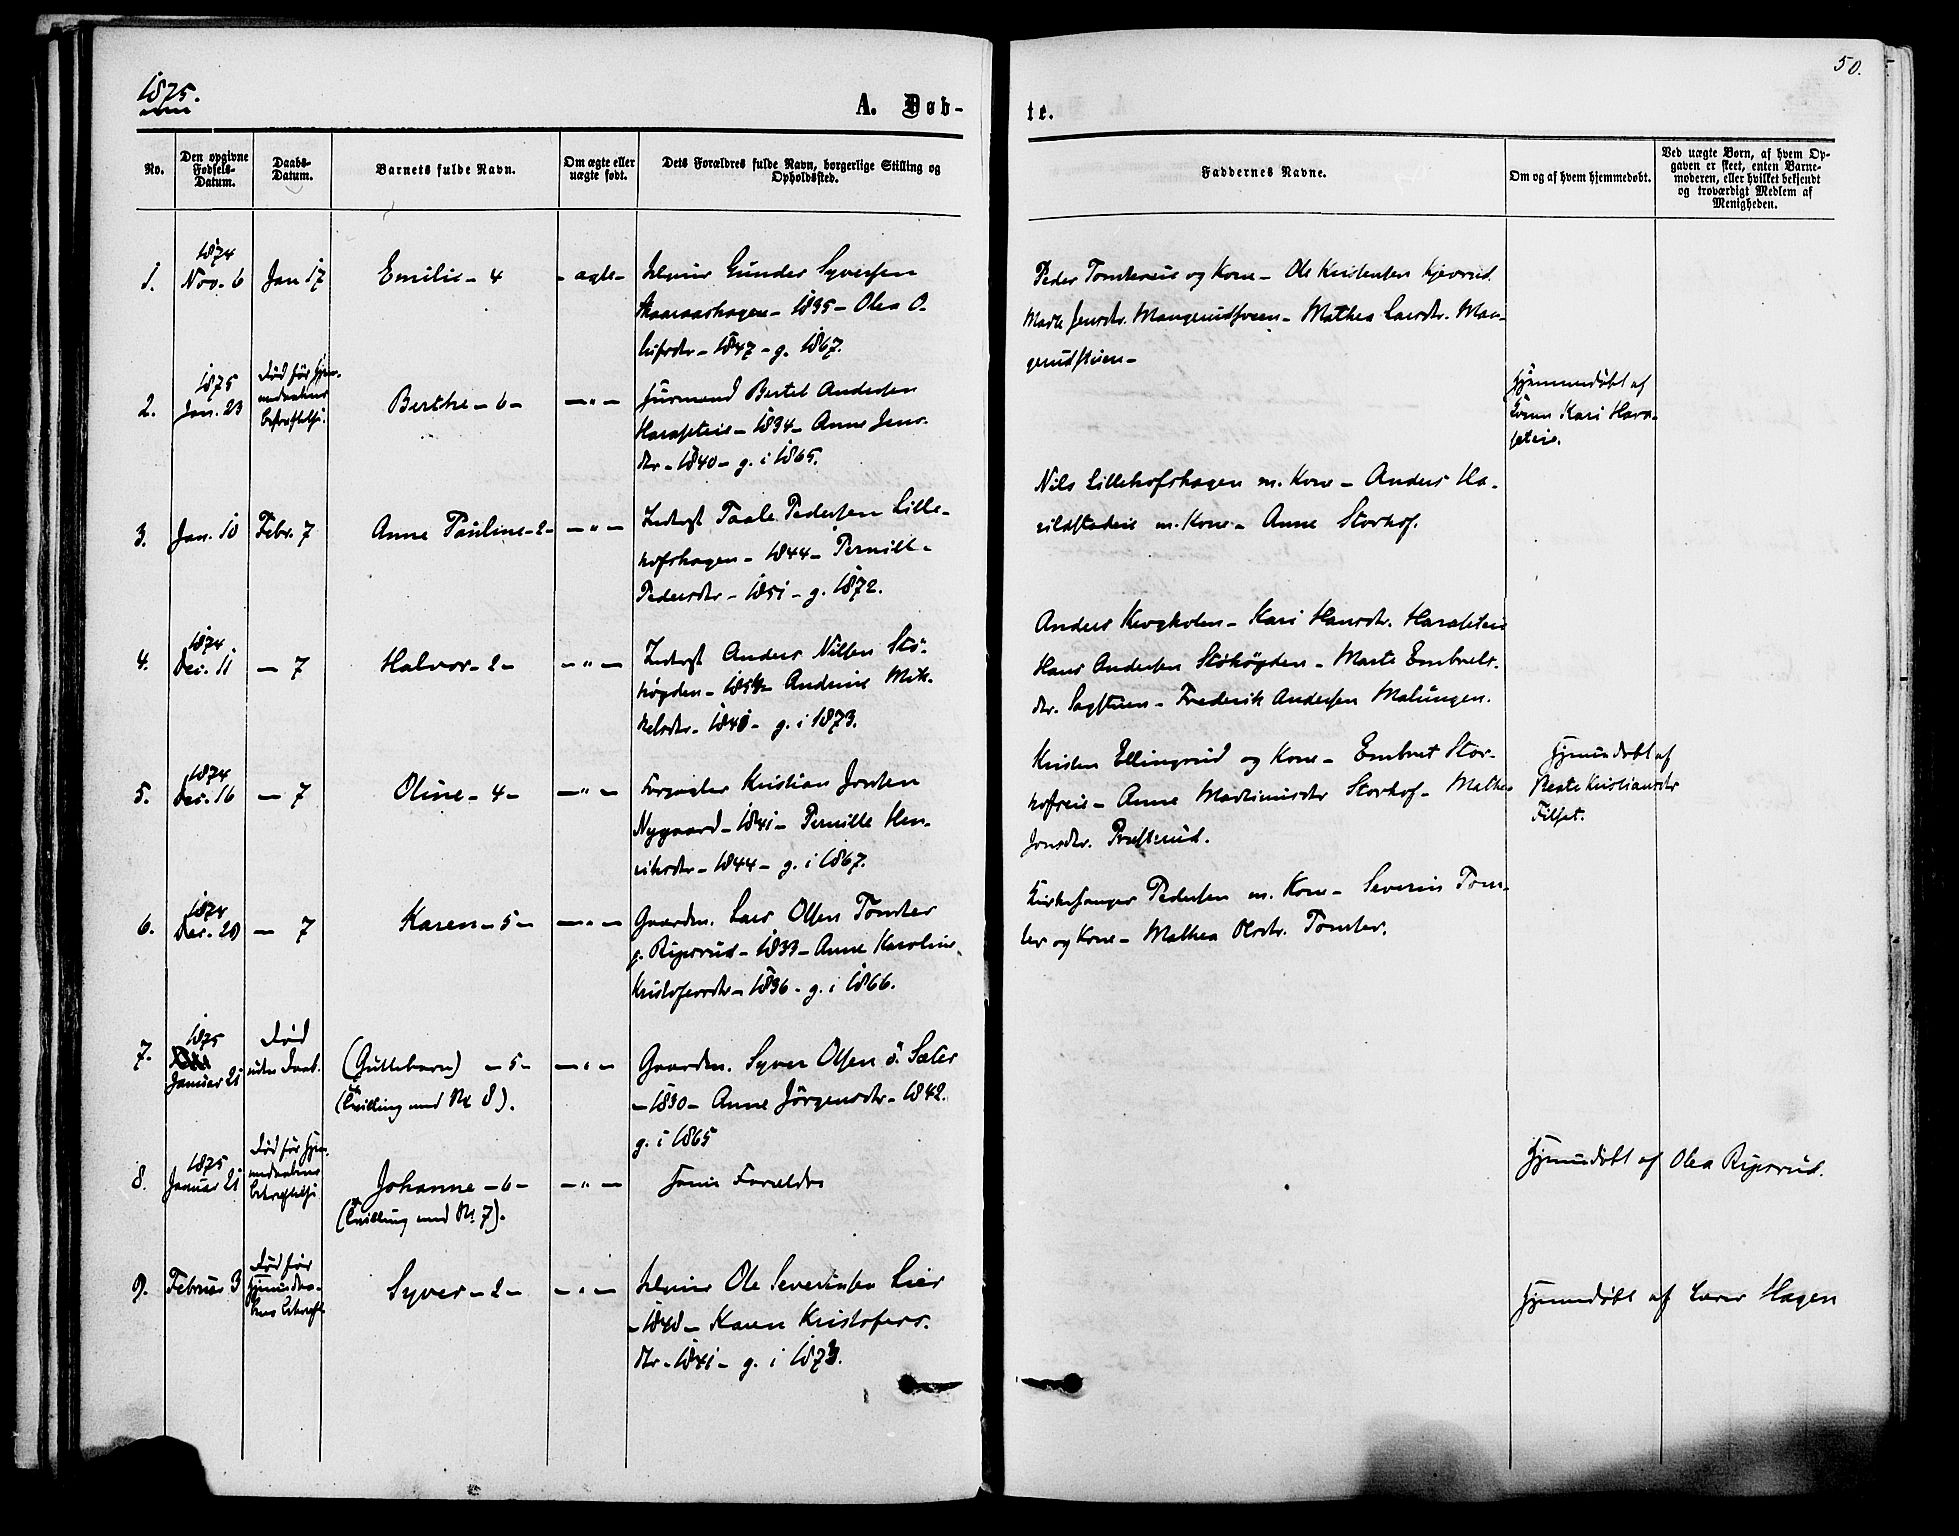 1875.
50.
A. Døb-
te.
No.
Den opgivne
Fødsels-
Datum.
Daabs-
Datum.
Barnets fulde Navn.
Om ægte eller
uægte født.
Dets Forældres fulde Navn, borgerlige Stilling og
Opholdssted.
Faddernes Navne.
Om og af hvem hjemmedøbt.
Ved uægte Børn, af hvem Op-
gaven er skeet, enten Barne-
moderen, eller hvilket bekjendt
og troværdigt Medlem af
Menigheden.
1.
1874
Nov. 6
Jan 17
Emilie - 4
- ægte -
Gunder Syversen
- 1835 - Olea O-
- 1847 - g. 1867.
Peder og Kone - Ole Kristensen
Mathea Larsdr. Man-
gerudstuen -
2.
1875
Jan. 23
Død før Hjem-
medaabens
Berthe - 6 -
- " -
Bertel Andersen
- 1834 - Anne Jens-
dtr - 1840 - g. i 1865.
Hjemmedøbt af
Kari Hara-
3.
Jan. 10
Febr. 7
Anne Pauline - 2 -
- " -
Inderst Taale Pedersen Lille-
hofshagen - 1844 - Pernille
Pedersdtr - 1851 - g. 1872.
Nils Lillehofshagen m. Kone - Anders Ha-
m. Kone - Anne Storhof.
4.
1874
Dec. 11
- 7
Halvor - 2 -
- " -
Inderst Anders Nilsen Stö-
högden - Andrine Mik-
kelsdtr - g. i 1873.
Anders Krogholen - Kari Hansdr.
Hans Andersen Stöhögden - Marte Embrets-
dtr. Sagstuen - Frederik Andersen Malungen.
5.
1874
Dec. 16
- 7
Oline - 4 -
- " -
Kristian Jonsen
Nygaard - 1841 - Pernille Hen-
riksdtr - 1844 - g. i 1867.
Kristen Ellingsrud og Kone - Embret Stor-
hofseie - Anne Storhof - Mathea
Jonsdtr.
Hjemmedøbt af
Beate Kristiansdtr
Filset.
6.
1874
Dec. 20
- 7
Karen - 5 -
- " -
Gaardm. Lars Olsen Tömter
p. Ripsrud - 1833 - Anne Karoline
Kristofersdtr - 1836 - g. i 1866.
Kirkesanger Pedersen m. Kone - Severin Tom-
ter og Kone - Mathea Olsdtr. Tomter.
7.
1875
Januar 21
Død
uden Daab.
(Guttebarn) - 5 -
(Tvilling med No 8).
- " -
Gaardm. Syver Olsen ö. Sæter
- 1830 - Anne Jörgensdtr - 1842.
g. i 1865
8.
1875
Januar 21
Død før Hjem-
medaabens
Johanne - 6 -
(Tvilling med No 7).
- " -
Samme Forældre
Hjemmedøbt af Olea Ripsrud.
9.
Februar 3
Død før
Syver - 2 -
- " -
Ole Severinsen Lier
- 1840 - Karen Kristofers-
dtr - 1841 - g. i 1873.
Hjemmedøbt af Hagen